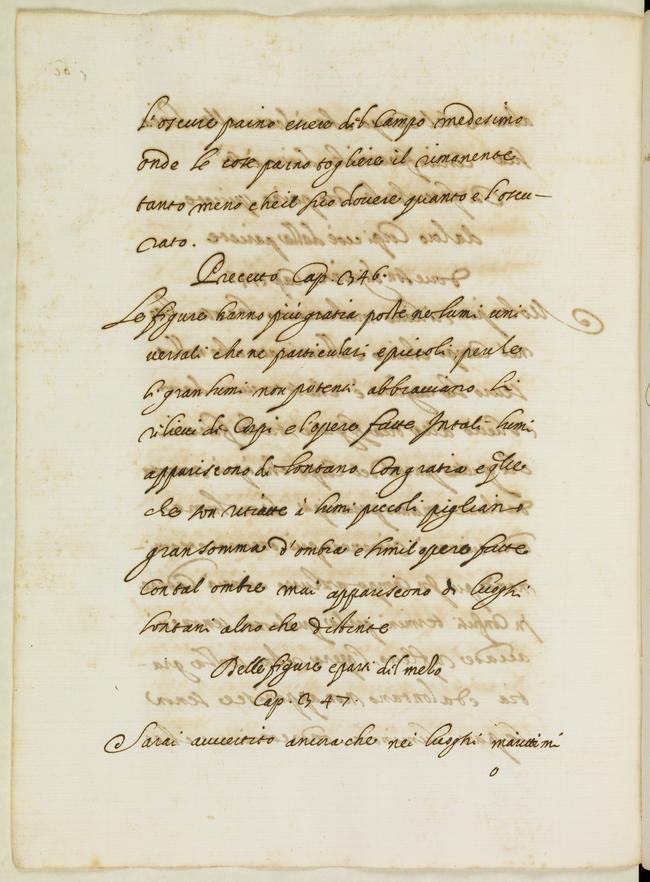 l'oscure paino essere del Campo medesimo
onde le cose paino togliere il rimanente
tanto meno che il suo dovere quanto e l'oscu-
rato.
Precetto Cap. 346.
Le figure hanno più gratia poste ne lumi uni
versali che ne particulari e piccoli, per che
li gran lumi non potenti abbracciano li
rilievi de Corpi e l'opere fatte In tali lumi
appariscono di lontano Con gratia e q.lle
che son ritratte à lumi piccoli pigliano
gran somma d'ombra e simil opere fatte
Con tal ombre mai appariscono di luoghi
lontani altro che di tinte
Delle figure e parti del me
Cap. 347.
Sarai avvertito ancora che nei luoghi marittimi
o